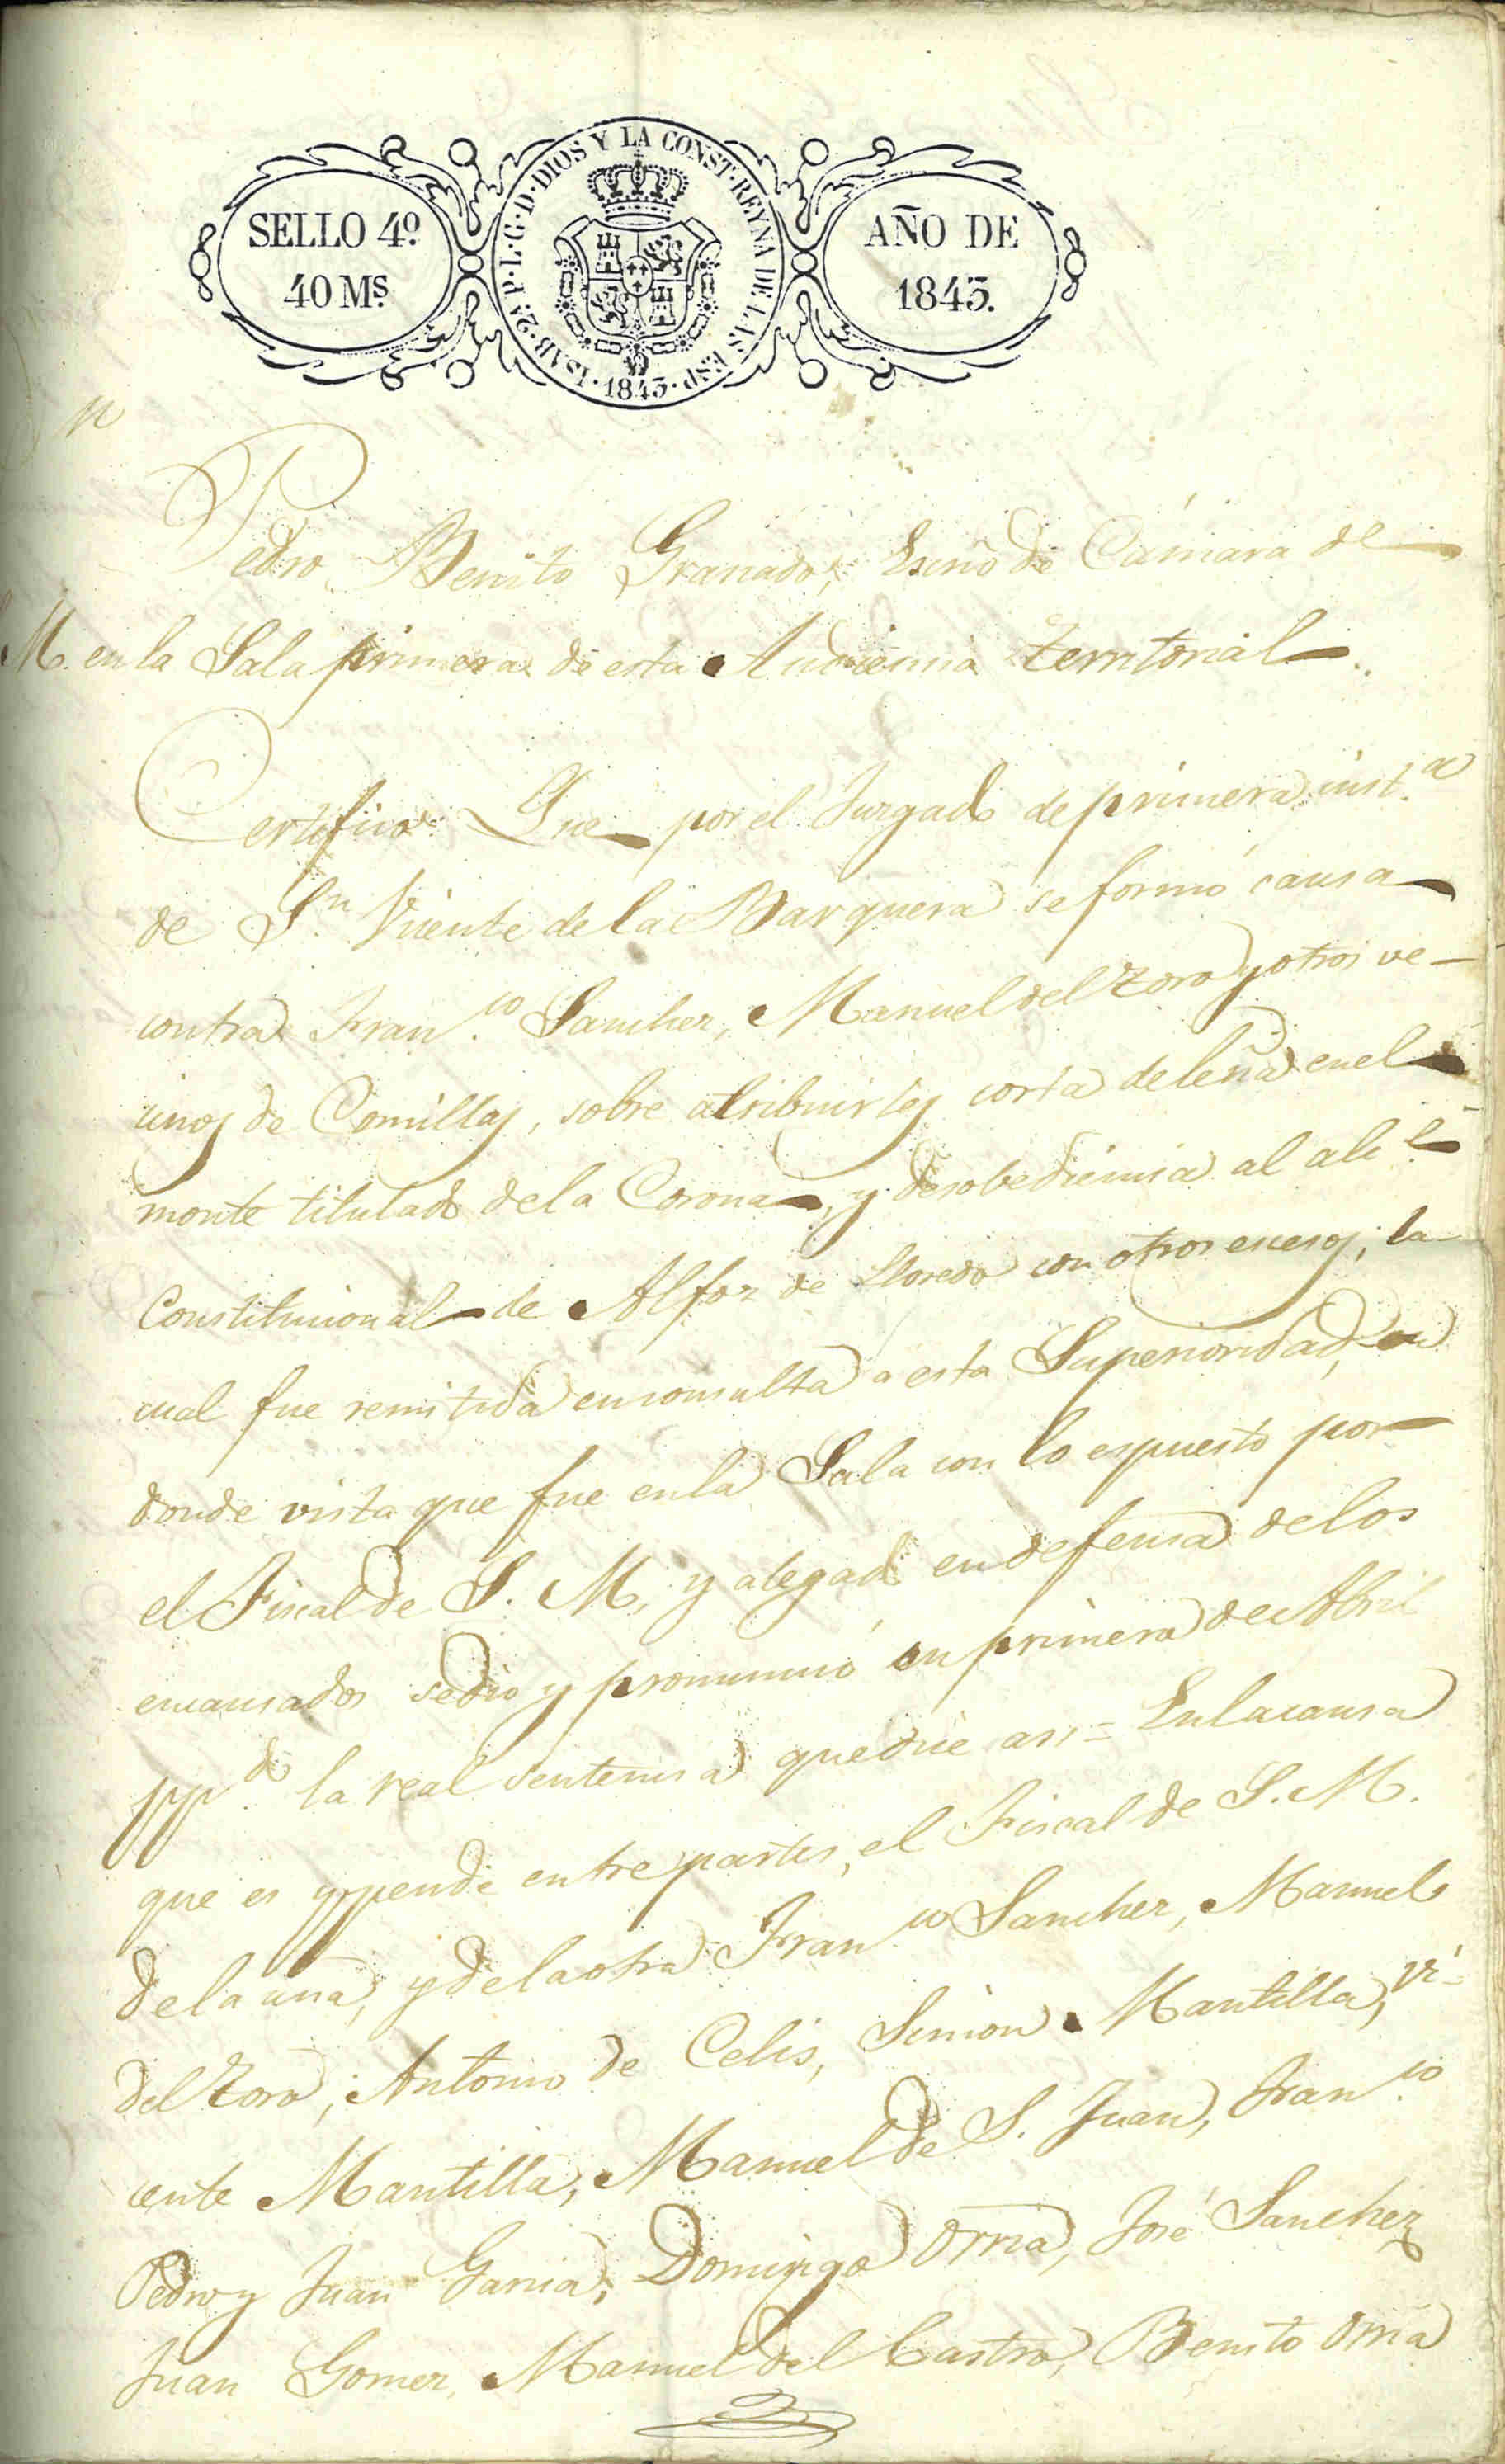 SELLO 4º
40 Mˢ
ISAB·2ª·P·L·G·D·DIOS Y LA CONST·REYNA DE LAS ESP·1843·
AÑO DE
1843.
Pedro Benito Granado, Esnõ de Cámara de
M. en la Sala primera de esta Audiencia territorial
Certifico Que por el Juzgado de primera inst.ª
de S.n Vicente de la Barquera se formó causa
contra Fran.co Sanchez, Manuel del Zoro y otros ve-
cinos de Comillas, sobre atribuirles corta de leña en el
monte titulado de la Corona, y desobediencia al alc.e
Constitucional de Alfoz de Lloredo con otros escesos; la
cual fue remitida en consulta a esta Superioridad, en
donde vista que fue en la Sala con lo espuesto por
el Fiscal de S. M. y alegado en defensa de los
encausados se dio y pronunció en primero de Abril
pp.do la real sentencia que dice asi = En la causa
que es y pende entre partes, el Fiscal de S. M.
de la una, y de la otra Fran.co Sanchez, Manuel
del Zoro, Antonio de Celis, Simon Mantilla, Vi-
cente Mantilla, Manuel de S. Juan, Fran.co
Pedro y Juan Garcia, Domingo Orria, José Sanchez
Juan Gomez, Manuel del Castro, Benito Orria